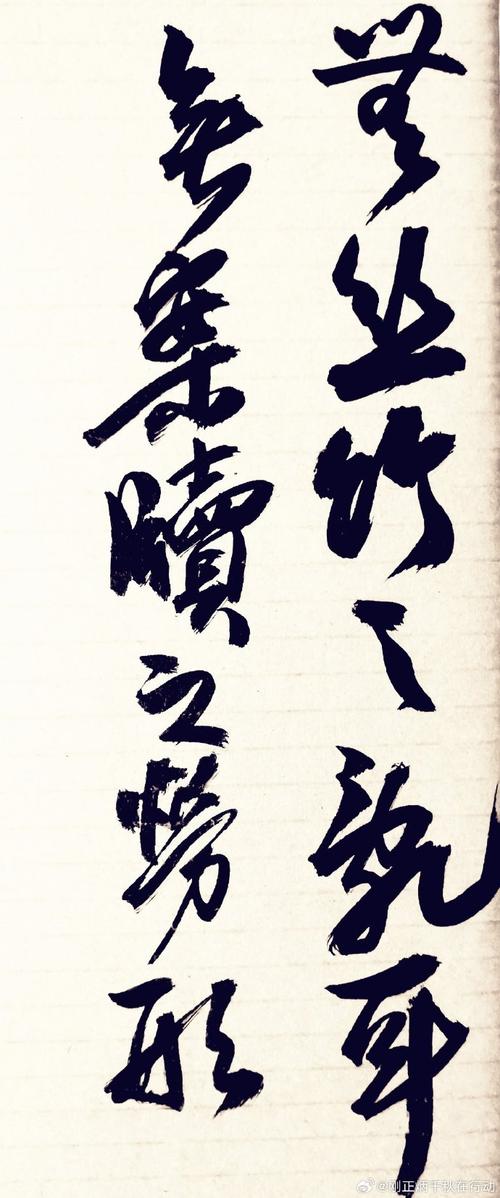 無丝竹之亂耳
無案牘之勞形
@刚正炳千秋在行动